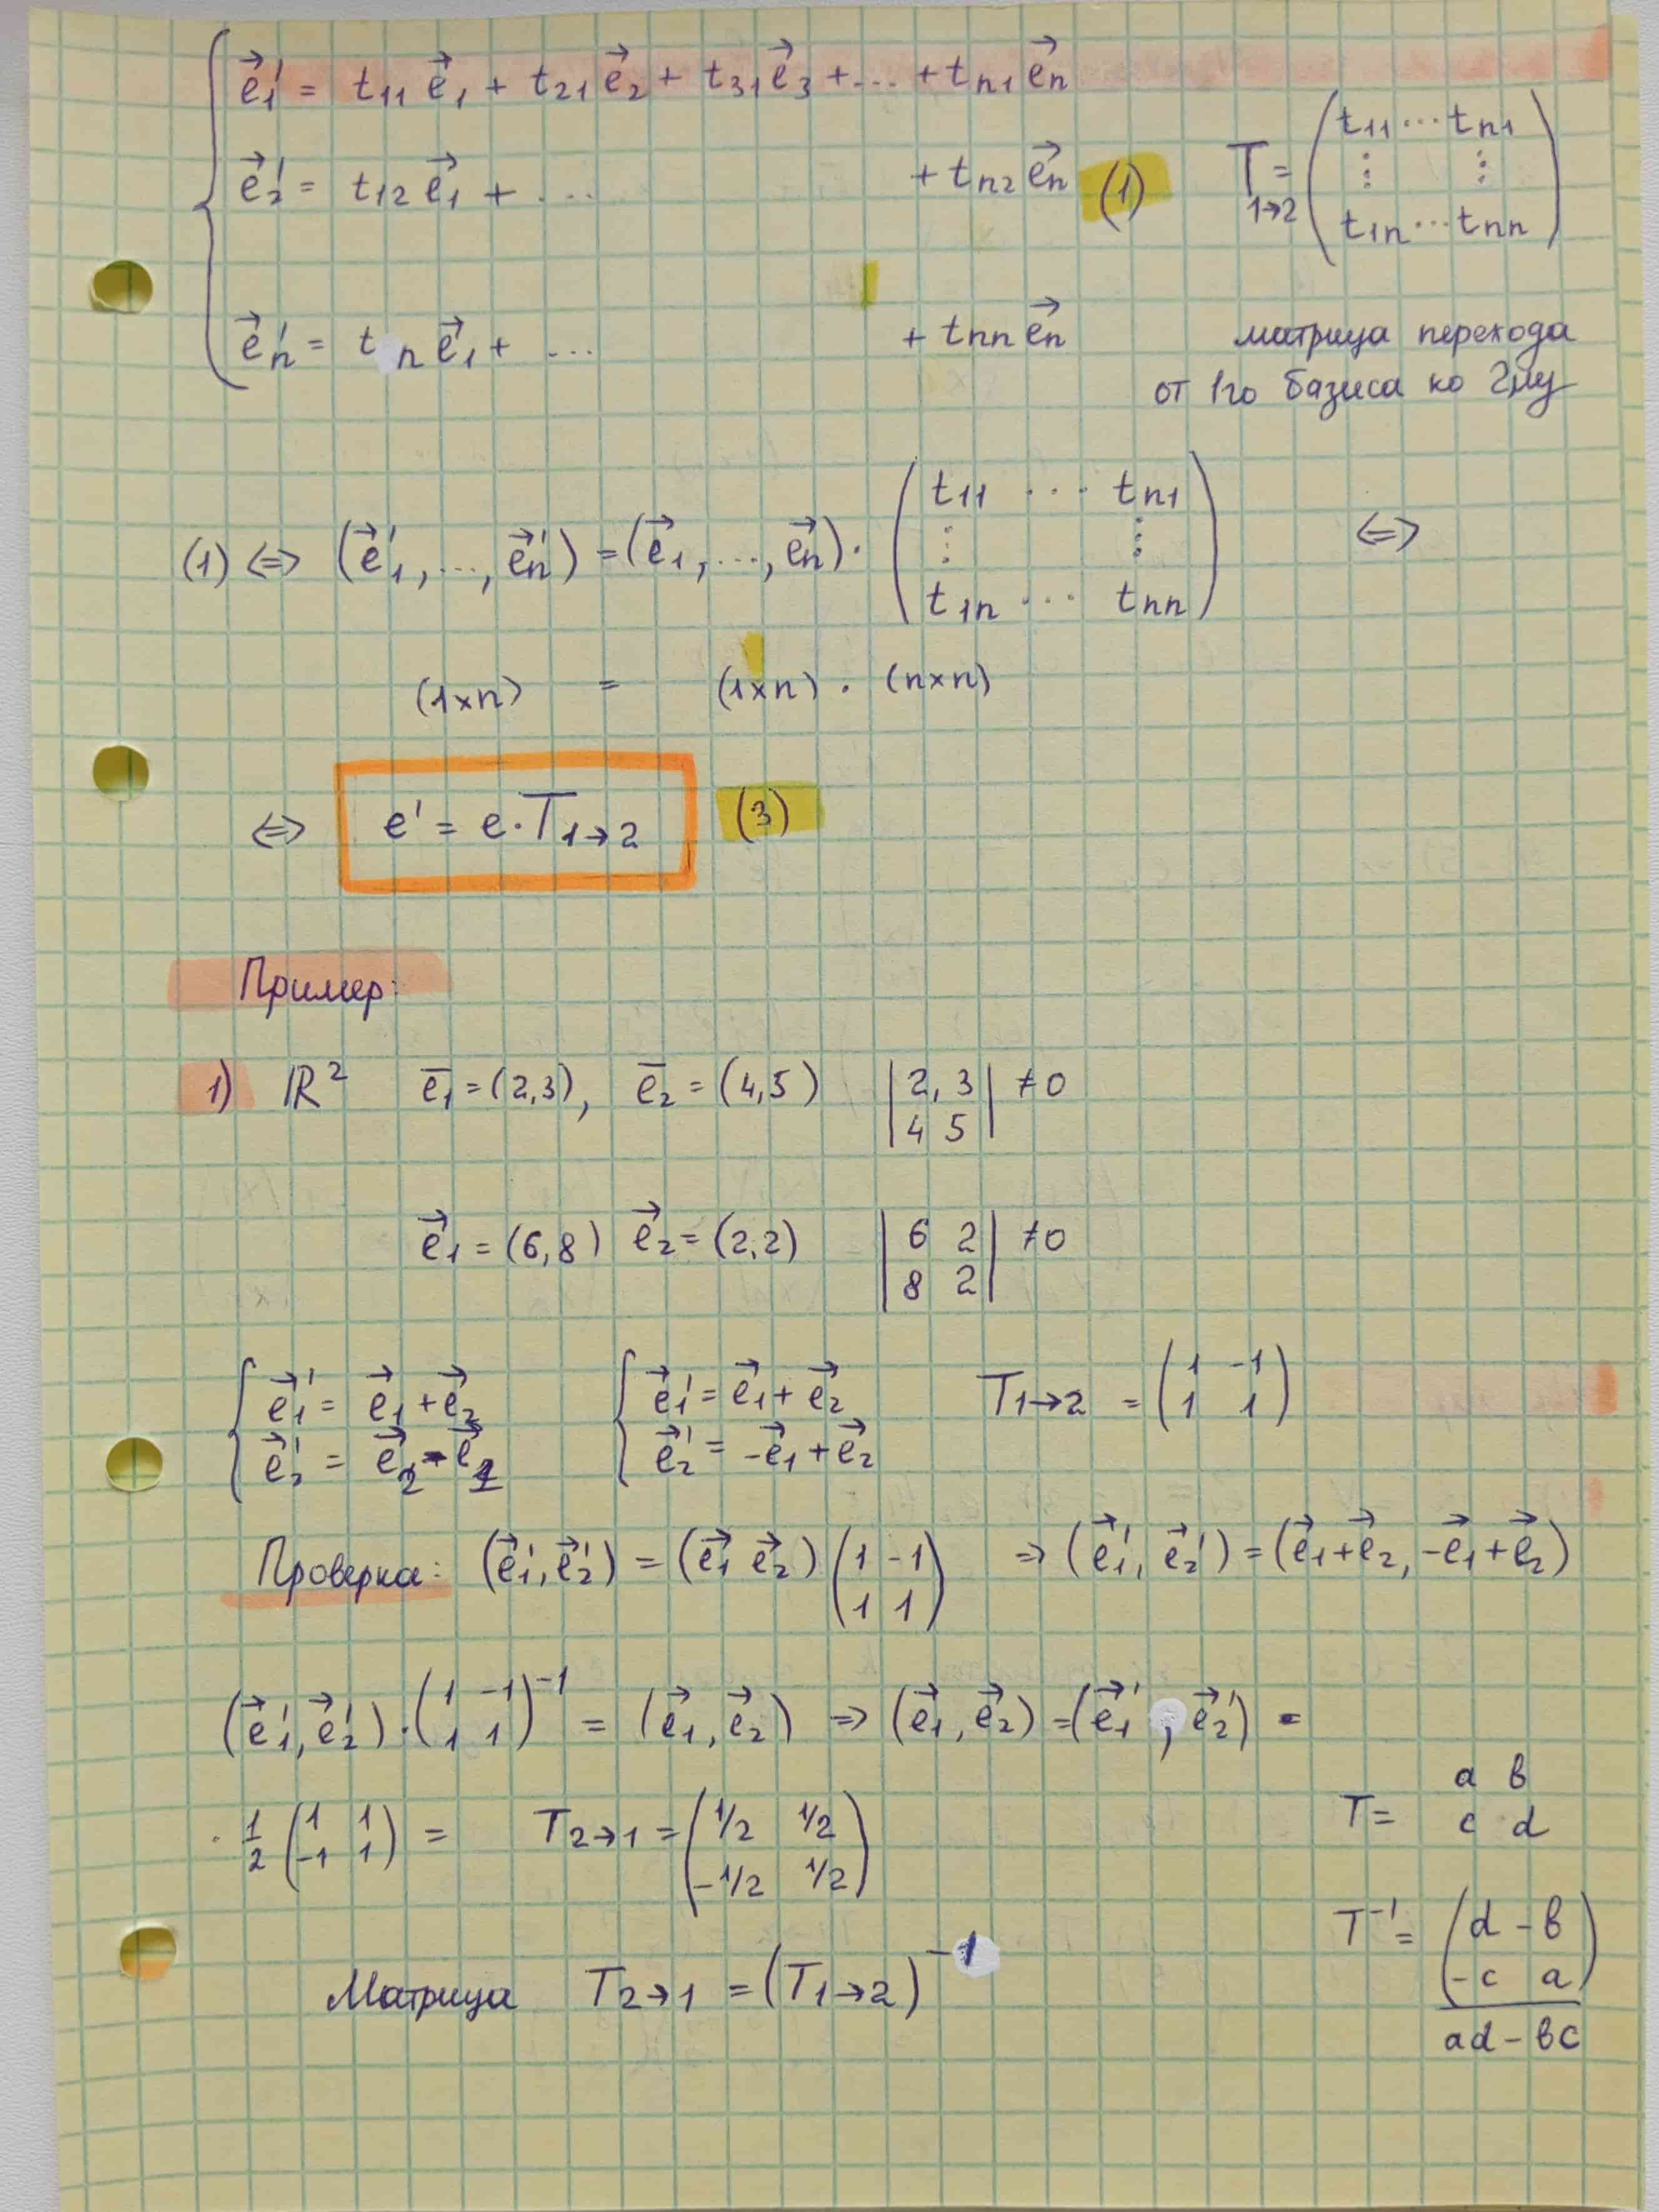 e⃗₁' = t₁₁ e⃗₁ + t₂₁ e⃗₂ + t₃₁ e⃗₃ + ... + tₙ₁ e⃗ₙ
e⃗₂' = t₁₂ e⃗₁ + ... + tₙ₂ e⃗ₙ (1)
T 1→2 = ( t₁₁ ... tₙ₁
⋮ ⋮
t₁ₙ ... tₙₙ )
e⃗ₙ' = t ₙ e⃗₁ + ... + tₙₙ e⃗ₙ
матрица перехода
от 1го базиса ко 2му
(1) ⇔ (e⃗₁', ..., e⃗ₙ') = (e⃗₁, ..., e⃗ₙ) · ( t₁₁ ... tₙ₁
⋮ ⋮
t₁ₙ ... tₙₙ ) ⇔
(1×n) = (1×n) · (n×n)
⇔ e' = e·T₁→₂ (3)
Пример:
1) ℝ² e̅₁ = (2,3), e̅₂ = (4,5) | 2, 3 | ≠0
| 4 5 |
e⃗₁ = (6,8) e⃗₂ = (2,2) | 6 2 | ≠0
| 8 2 |
{ e⃗₁' = e⃗₁ + e⃗₂ { e⃗₁' = e⃗₁ + e⃗₂ T₁→₂ = ( 1 -1
{ e⃗₂' = e⃗₂ - e⃗₁ { e⃗₂' = -e⃗₁ + e⃗₂ 1 1 )
Проверка: (e⃗₁', e⃗₂') = (e⃗₁ e⃗₂) ( 1 -1 ⇒ (e⃗₁', e⃗₂') = (e⃗₁+e⃗₂, -e⃗₁+e⃗₂)
1 1 )
(e⃗₁', e⃗₂') · ( 1 -1
1 1 )⁻¹ = (e⃗₁, e⃗₂) ⇒ (e⃗₁, e⃗₂) = (e⃗₁', e⃗₂') ·
· 1/2 ( 1 1
-1 1 ) = T₂→₁ = ( 1/2 1/2
-1/2 1/2 )
T = a b
c d
T⁻¹ = ( d -b
-c a )
ad - bc
Матрица T₂→₁ = (T₁→₂)⁻¹